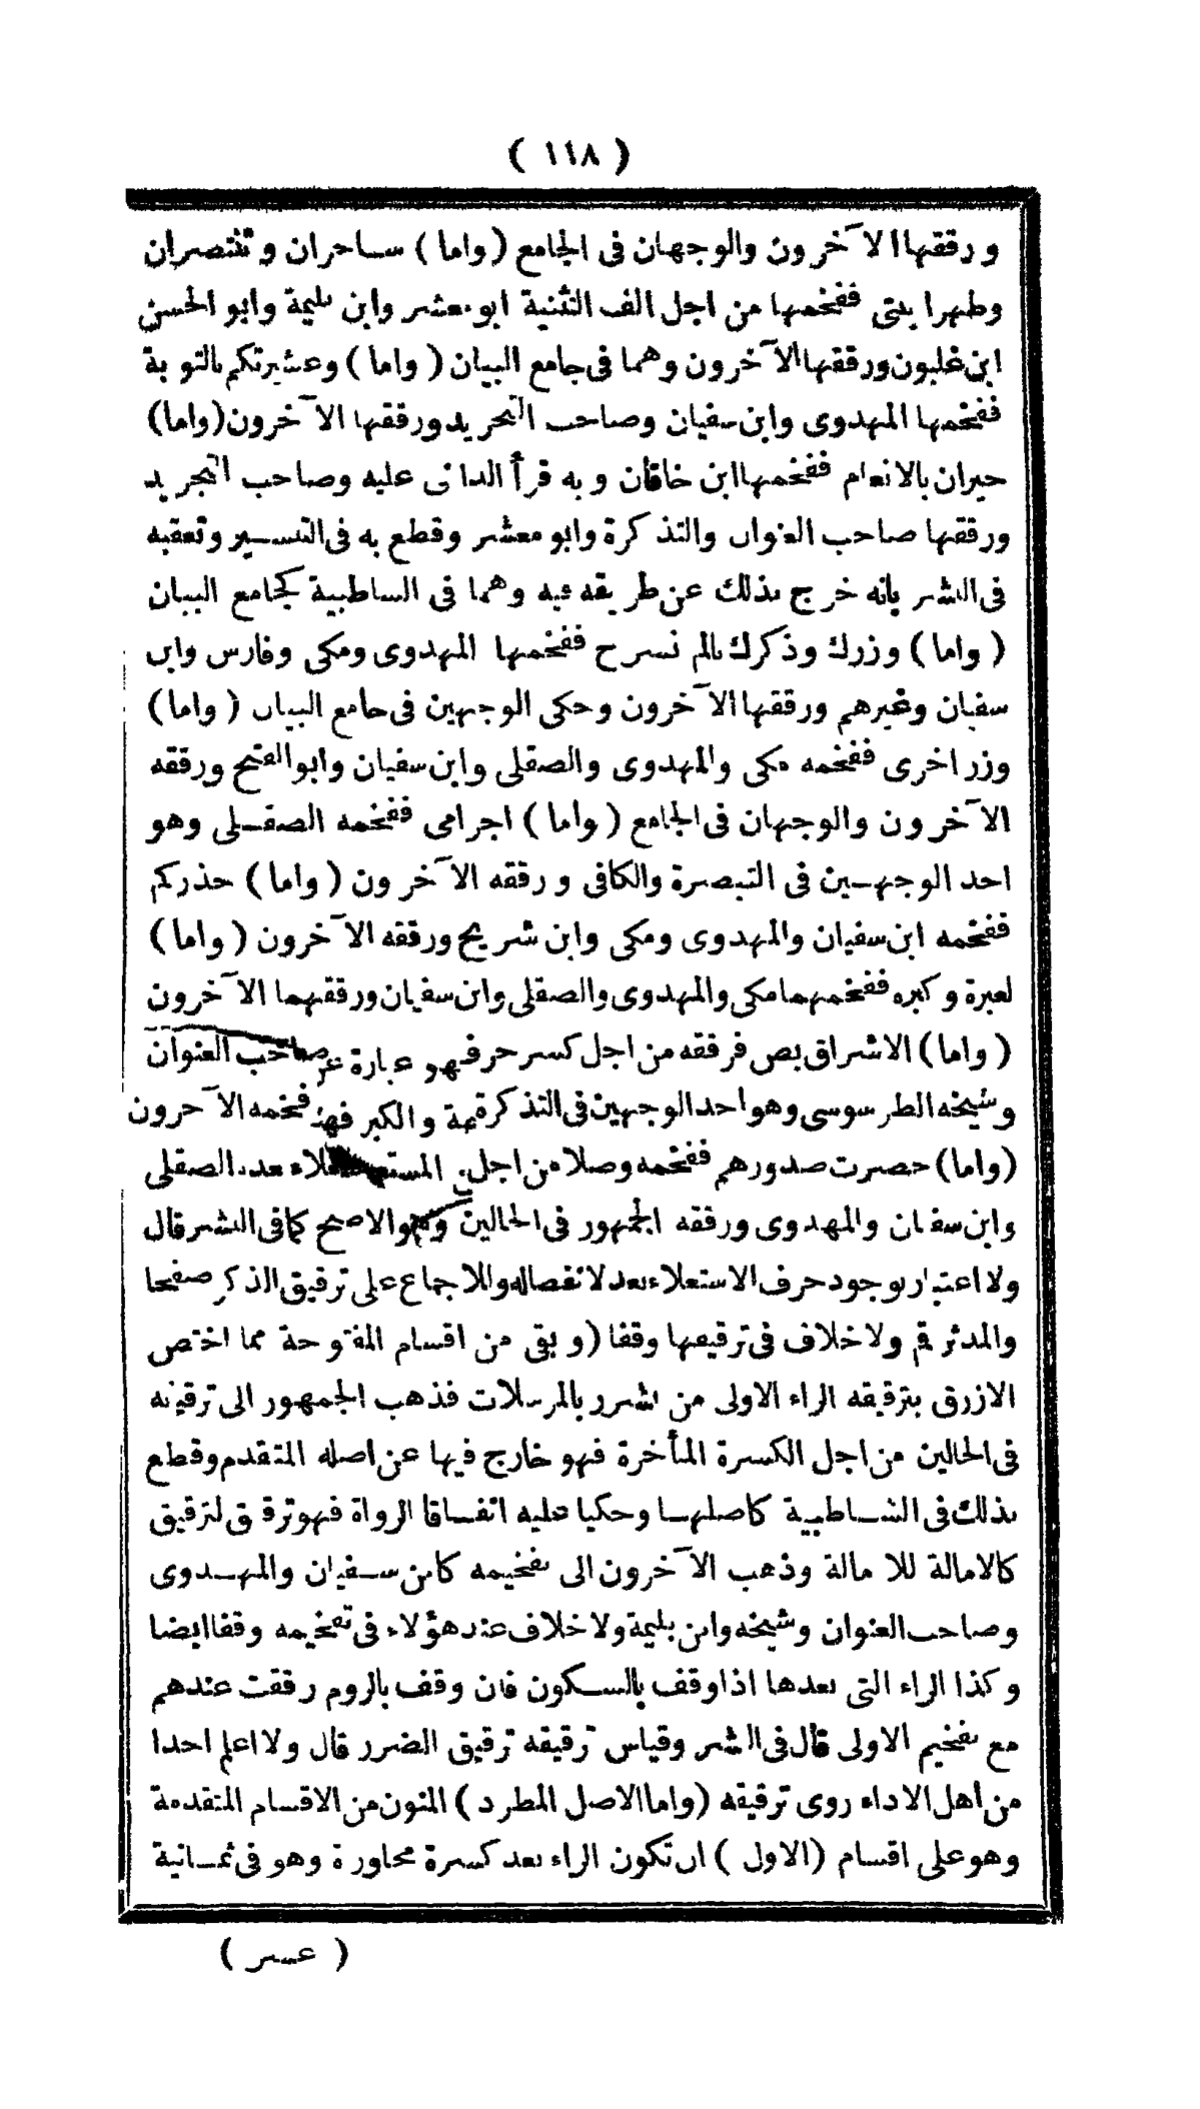 ( ١١٨ )
ورققها الآخرون والوجهان فى الجامع (واما) ساحران وتنتصران
وطهرا بيتى ففخمها من اجل الف التثنية ابو معشر وابن بليمة وابو الحسن
ابن غلبون ورققها الآخرون وهما فى جامع البيان (واما) وعشيرتكم بالتوبة
ففخمها المهدوى وابن سفيان وصاحب التجريد ورققها الآخرون (واما)
حيران بالانعام ففخمها ابن خاقان وبه قرأ الدانى عليه وصاحب التجريد
ورققها صاحب العنوان والتذكرة وابو معشر وقطع به فى التيسير وتعقبه
فى النشر بانه خرج بذلك عن طريقه فيه وهما فى الشاطبية كجامع البيان
(واما) وزرك وذكرك بالم نشرح ففخمها المهدوى ومكى وفارس وابن
سفيان وغيرهم ورققها الآخرون وحكى الوجهين فى جامع البيان (واما)
وزر اخرى ففخمه مكى والمهدوى والصقلى وابن سفيان وابو الفتح ورققه
الآخرون والوجهان فى الجامع (واما) اجرامى ففخمه الصقلى وهو
احد الوجهين فى التبصرة والكافى ورققه الآخرون (واما) حذركم
ففخمه ابن سفيان والمهدوى ومكى وابن شريح ورققه الآخرون (واما)
لعبرة وكبره ففخمهما مكى والمهدوى والصقلى وابن سفيان ورققهما الآخرون
(واما) الاشراق بص فرققه من اجل كسر حرف فهو عبارة عن صاحب العنوان
وشيخه الطرسوسى وهو احد الوجهين فى التذكرة والكبر ففخمه الآخرون
(واما) حصرت صدورهم ففخمه وصلا من اجل بعد الصقلى
وابن سفيان والمهدوى ورققه الجمهور فى الحالين وهو الاصح كما فى النشر قال
ولا اعتبار بوجود حرف الاستعلاء بعد لانفصاله وللاجماع على ترقيق الذكر صفحا
والمدثر قم ولا خلاف فى ترقيقها وقفا (وبقى من اقسام المفتوحة مما اختص
الازرق بترقيقه الراء الاولى من بشرر بالمرسلات فذهب الجمهور الى ترقيقه
فى الحالين من اجل الكسرة المتأخرة فهو خارج فيها عن اصله المتقدم وقطع
بذلك فى الشاطبية كاصلها وحكيا عليه اتفاقا الرواة فهو ترقيق لترقيق
كالامالة للامالة وذهب الآخرون الى تفخيمه كابن سفيان والمهدوى
وصاحب العنوان وشيخه وابن بليمة ولا خلاف عند هؤلاء فى تفخيمه وقفا ايضا
وكذا الراء التى بعدها اذا وقف بالسكون فان وقف بالروم رققت عندهم
مع تفخيم الاولى قال فى النشر وقياس ترقيقه ترقيق الضرر قال ولا اعلم احدا
من اهل الاداء روى ترقيقه (واما الاصل المطرد) المنون من الاقسام المتقدمة
وهو على اقسام (الاول) ان تكون الراء بعد كسرة مجاورة وهو فى ثمانية
( عشر )